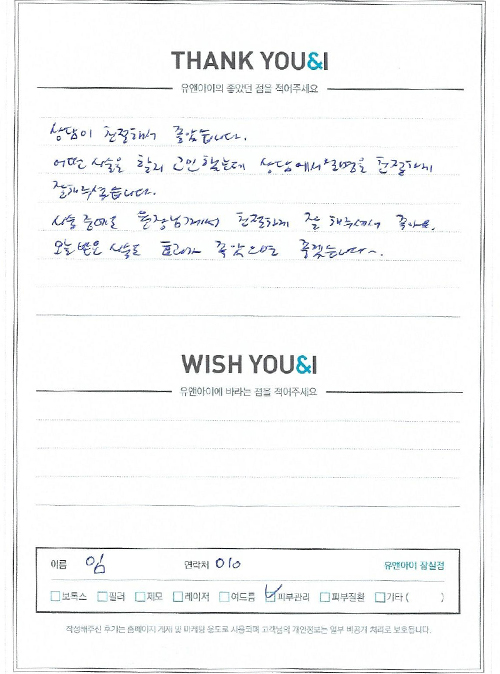 THANK YOU&I
유앤아이의 좋았던 점을 적어주세요
상담이 친절해서 좋았습니다.
어떤 시술을 할지 고민했는데 상담에서 설명을 친절하게
잘해주셨습니다.
시술 중에도 원장님께서 친절하게 잘 해주셔서 좋아요.
오늘 받은 시술도 효과가 좋았으면 좋겠습니다~.
WISH YOU&I
유앤아이에 바라는 점을 적어주세요
이름 임 연락처 010 유앤아이 잠실점
보톡스 필러 제모 레이저 여드름 피부관리 피부질환 기타 ( )
작성해주신 후기는 홈페이지 게재 및 마케팅 용도로 사용되며 고객님의 개인정보는 일부 비공개 처리로 보호됩니다.